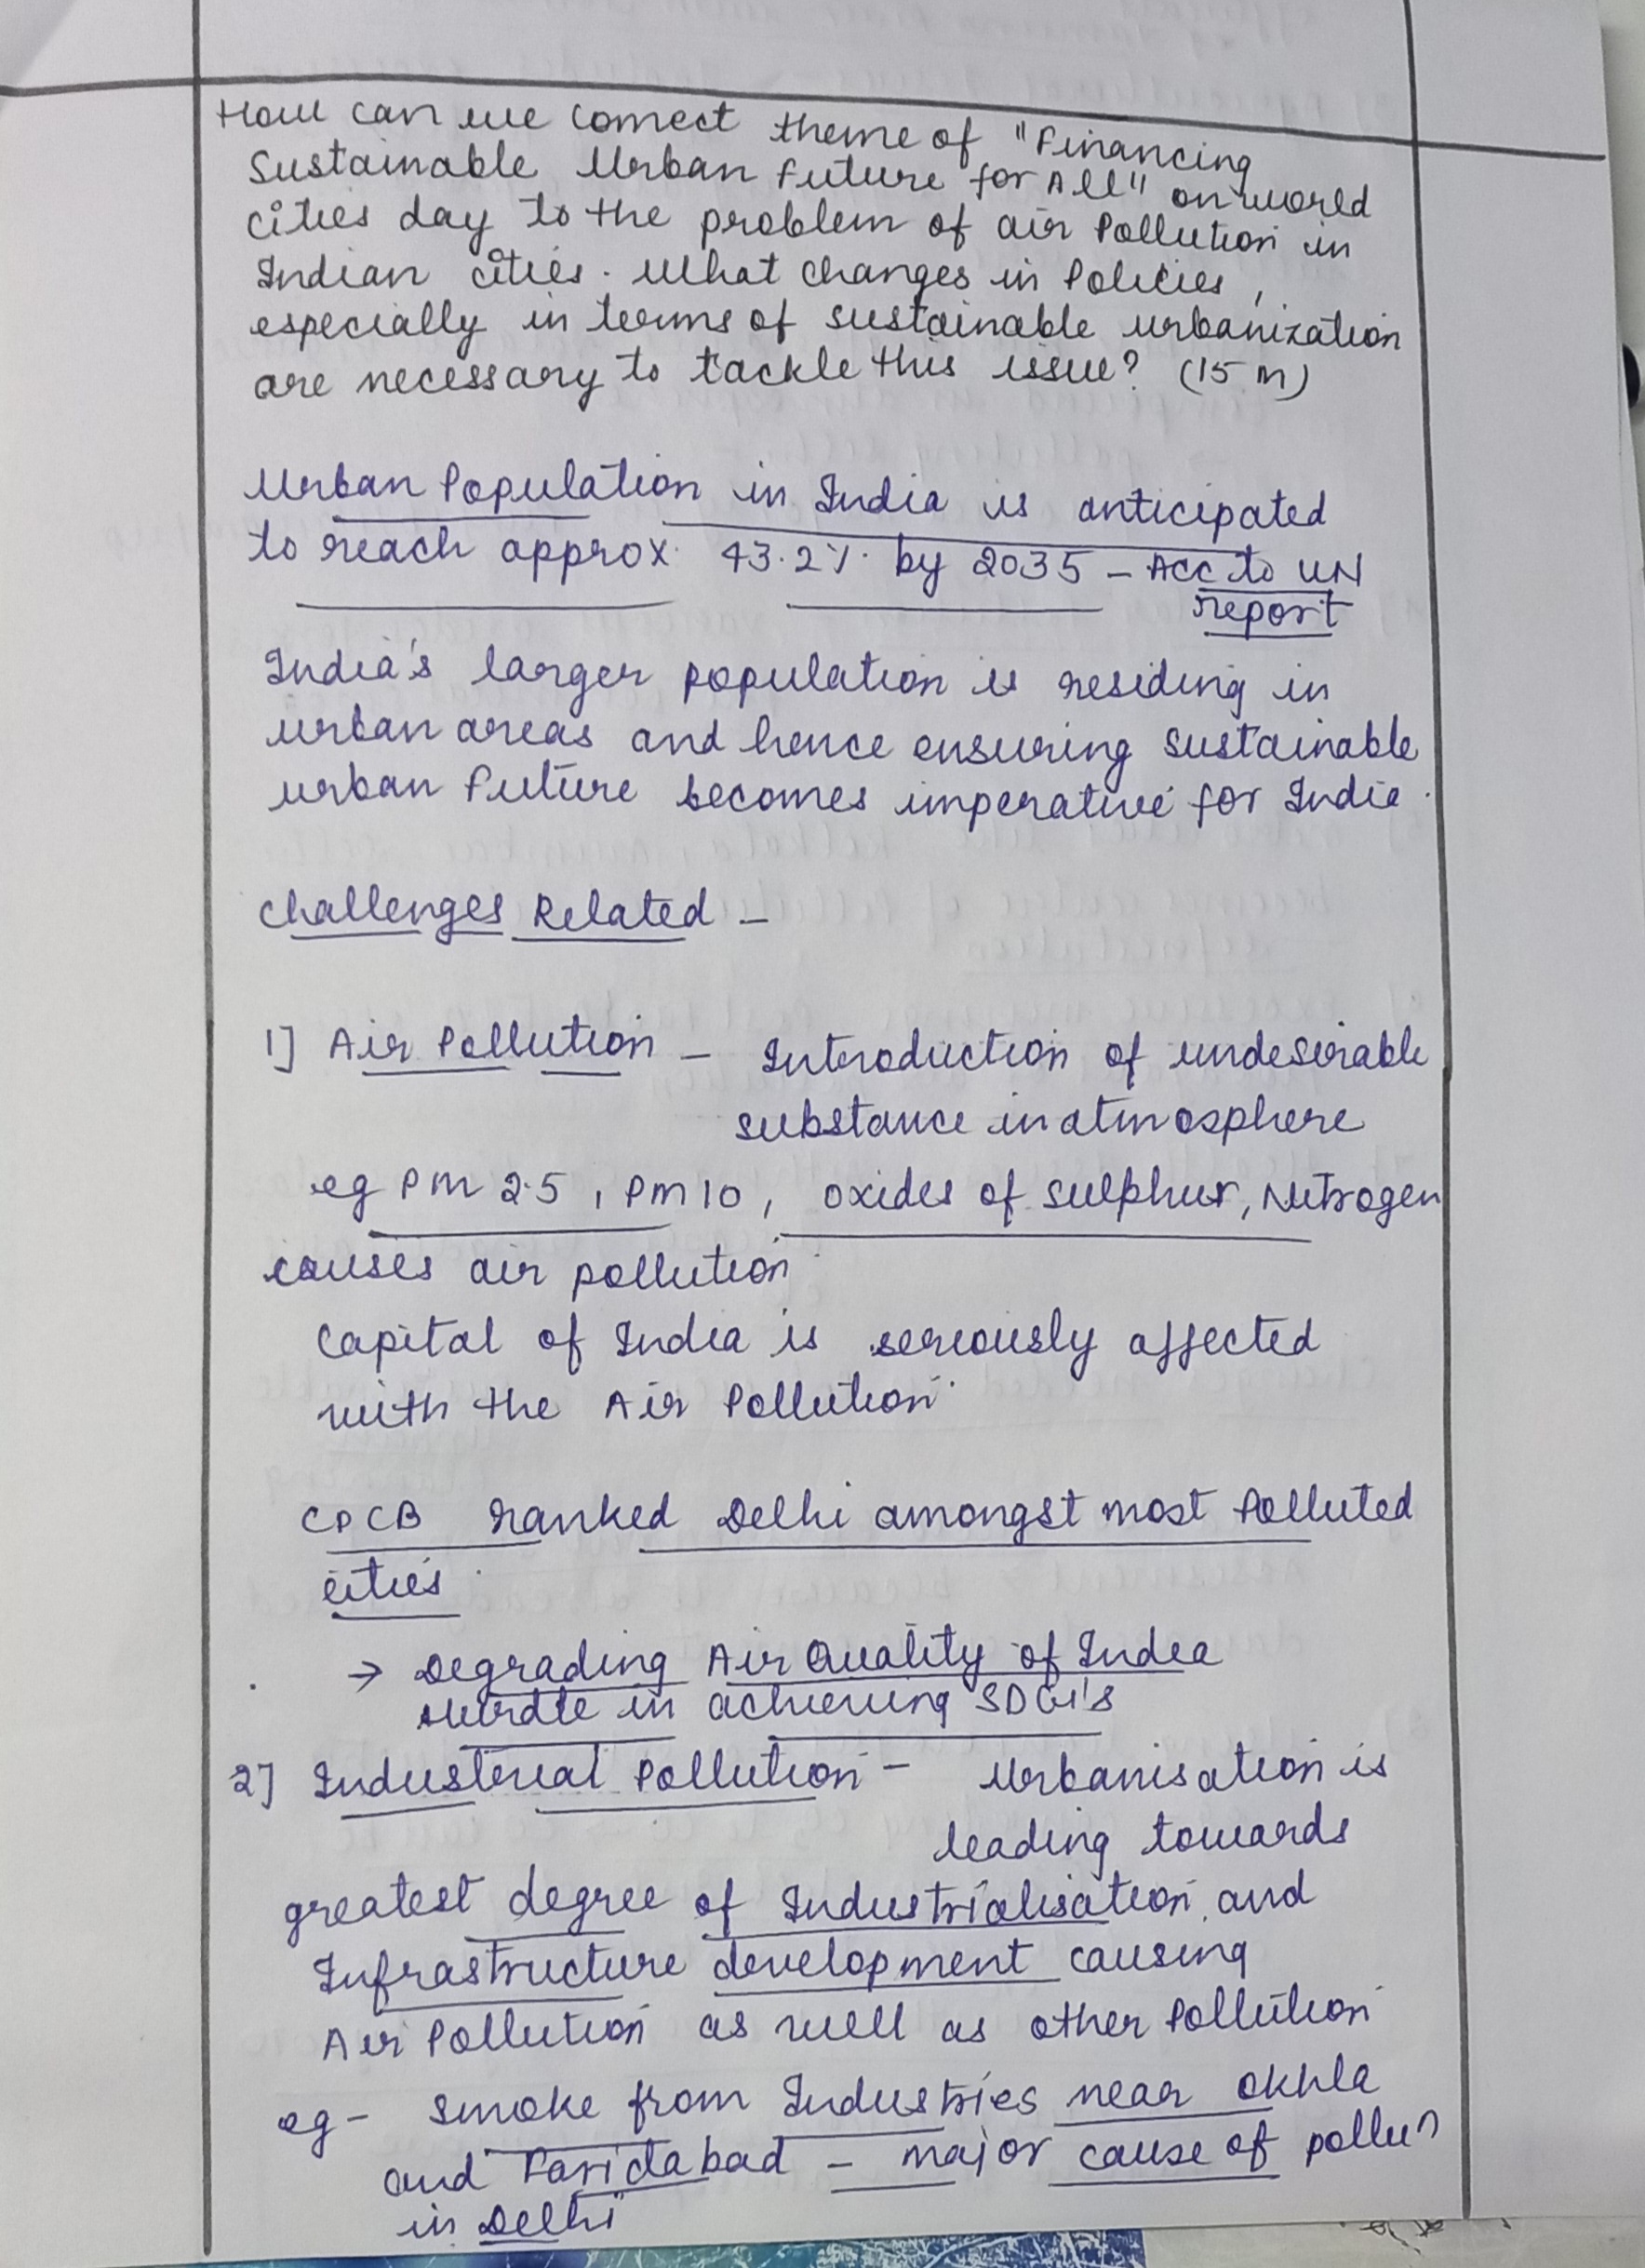 How can we connect theme of "Financing
Sustainable Urban Future for All" on world
cities day to the problem of air Pollution in
Indian cities. What changes in Policies,
especially in terms of sustainable urbanization
are necessary to tackle this issue? (15 m)
Urban Population in India is anticipated
to reach approx. 43.2% by 2035 - Acc to UN
report
India's larger population is residing in
urban areas and hence ensuring sustainable
urban future becomes imperative for India.
Challenges Related -
1] Air Pollution - Introduction of undesirable
substance in atmosphere
eg PM 2.5, PM 10, oxides of sulphur, Nitrogen
causes air pollution
Capital of India is seriously affected
with the Air Pollution.
CPCB ranked Delhi amongst most Polluted
cities.
→ Degrading Air Quality of India
Hurdle in achieving SDG's
2] Industerial Pollution - Urbanisation is
leading towards
greatest degree of Industrialisation and
Infrastructure development causing
Air Pollution as well as other Pollution
eg - Smoke from Industries near Okhla
and Faridabad - major cause of pollun
in Delhi